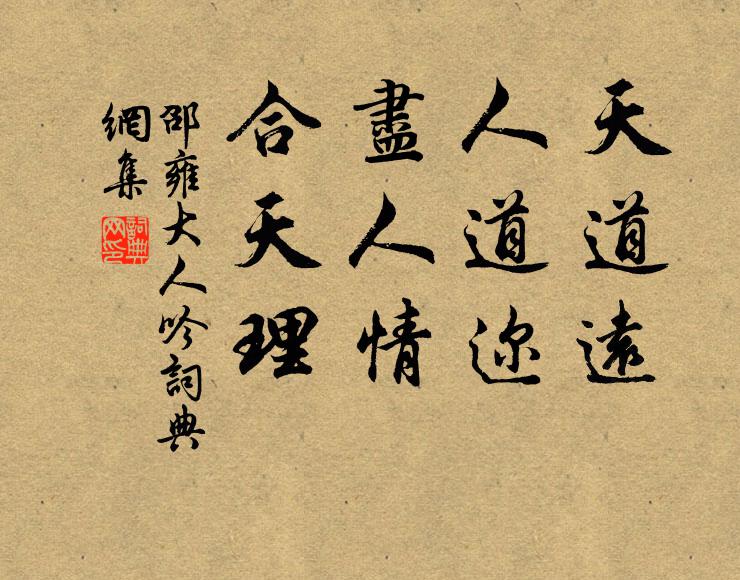 天道遠
人道迩
盡人情
合天理
邵雍大人吟詞典
網集
詞典
网印